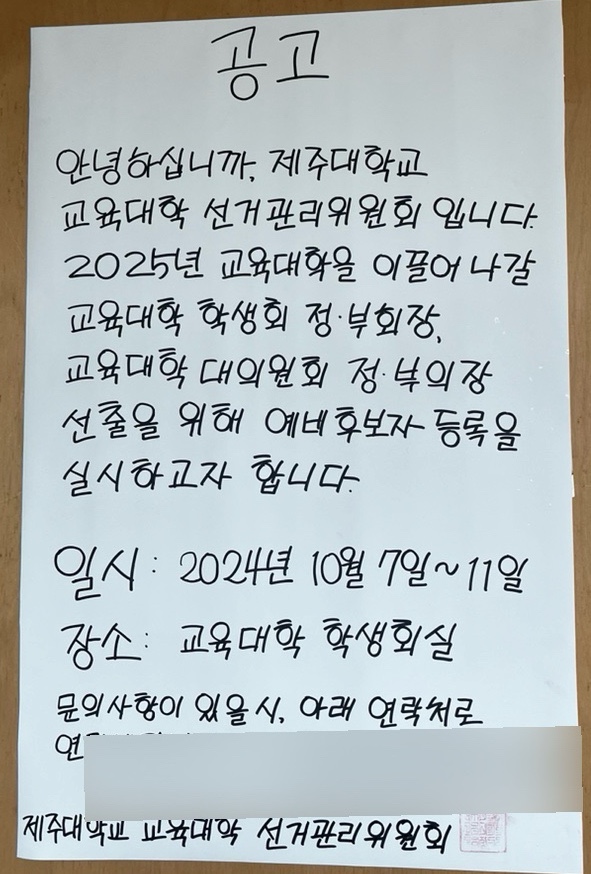 공고
안녕하십니까, 제주대학교
교육대학 선거관리위원회 입니다.
2025년 교육대학을 이끌어 나갈
교육대학 학생회 정·부회장,
교육대학 대의원회 정·부의장
선출을 위해 예비후보자 등록을
실시하고자 합니다.
일시: 2024년 10월 7일~11일
장소: 교육대학 학생회실
문의사항이 있을 시, 아래 연락처로
제주대학교 교육대학 선거관리위원회